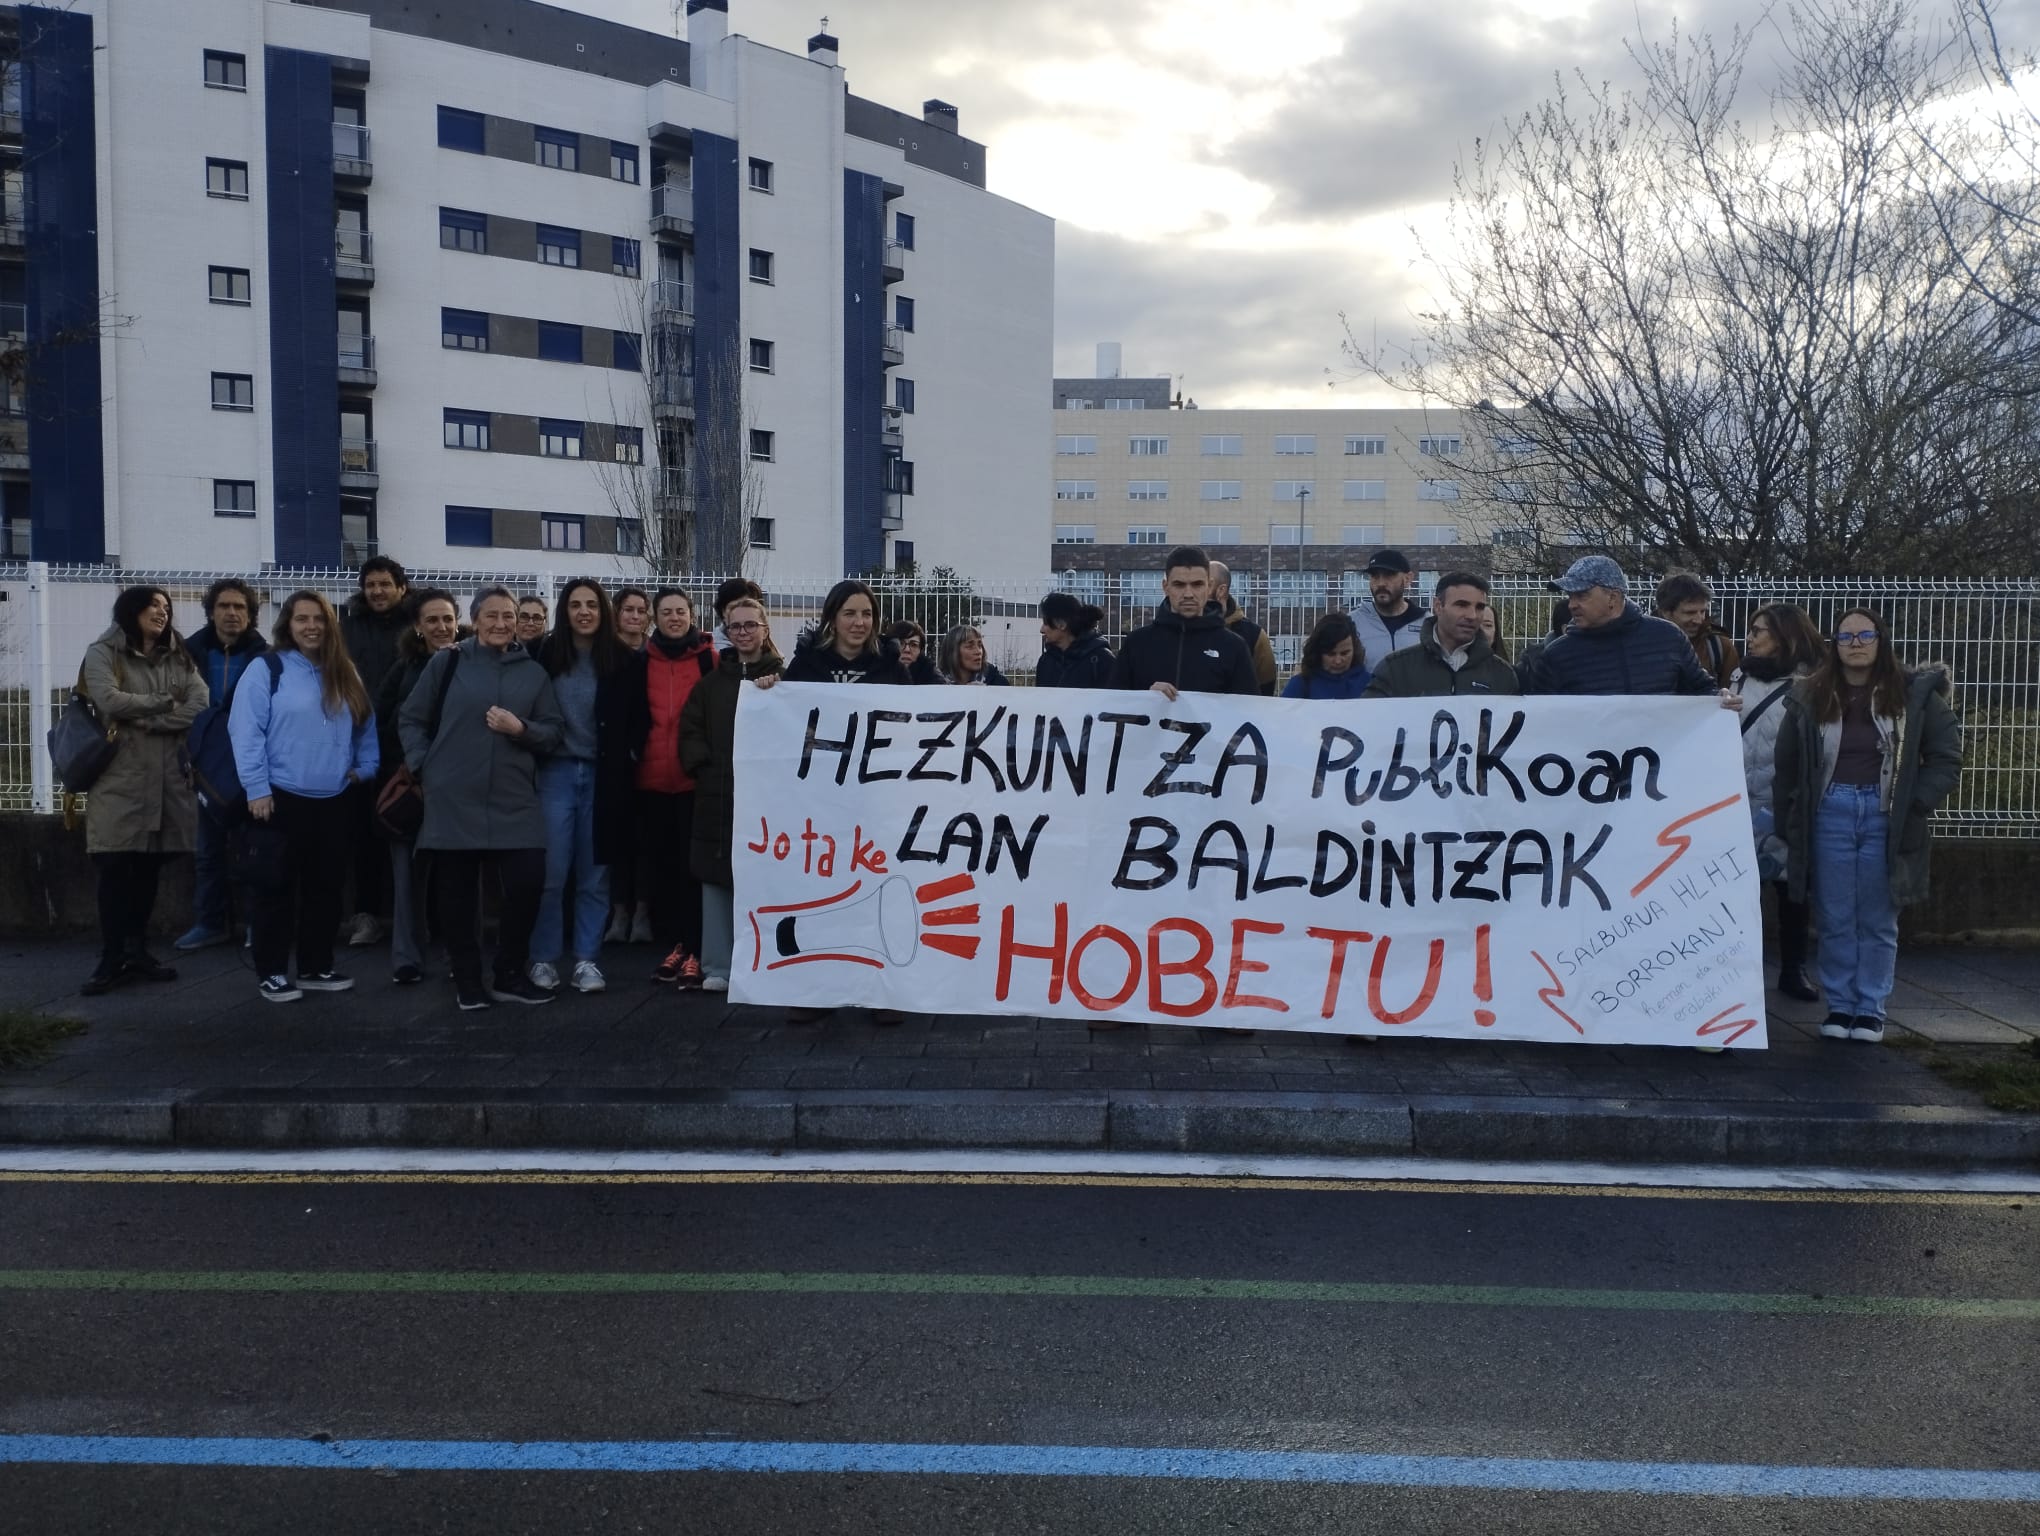 HEZKUNTZA PubliKoan
Jotake LAN BALDiNTZAK
HOBETU!
SALBURUA HLHI
BORROKAN!
hemen eta orain
erabaki!!!